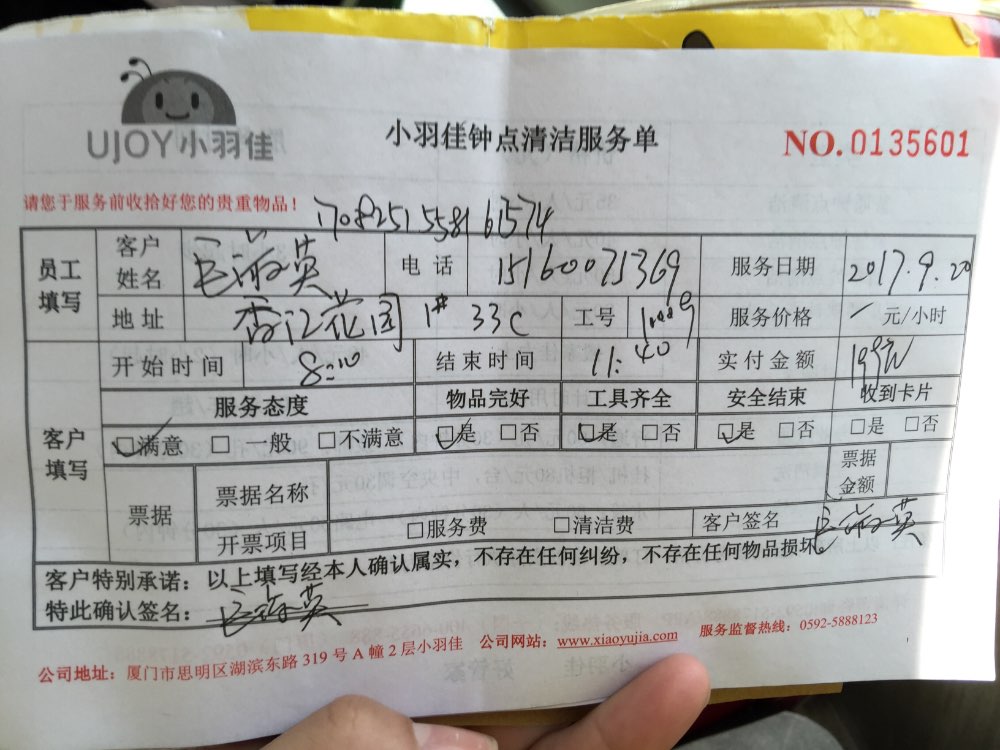 UJOY小羽佳
小羽佳钟点清洁服务单
NO.0135601
请您于服务前收拾好您的贵重物品！
员工填写 客户姓名 英 电话 15160075369 服务日期 2017.9.20
地址 香江花园 1# 33c 工号 服务价格 元/小时
客户填写 开始时间 8:10 结束时间 11:40 实付金额 199元
服务态度 物品完好 工具齐全 安全结束 收到卡片
满意 一般 不满意 是 否 是 否 是 否 是 否
票据 票据名称 票据金额
开票项目 服务费 清洁费 客户签名 英
客户特别承诺：以上填写经本人确认属实，不存在任何纠纷，不存在任何物品损坏。
特此确认签名： 英
公司地址：厦门市思明区湖滨东路 319 号 A 幢 2 层小羽佳 公司网站：www.xiaoyujia.com 服务监督热线：0592-5888123